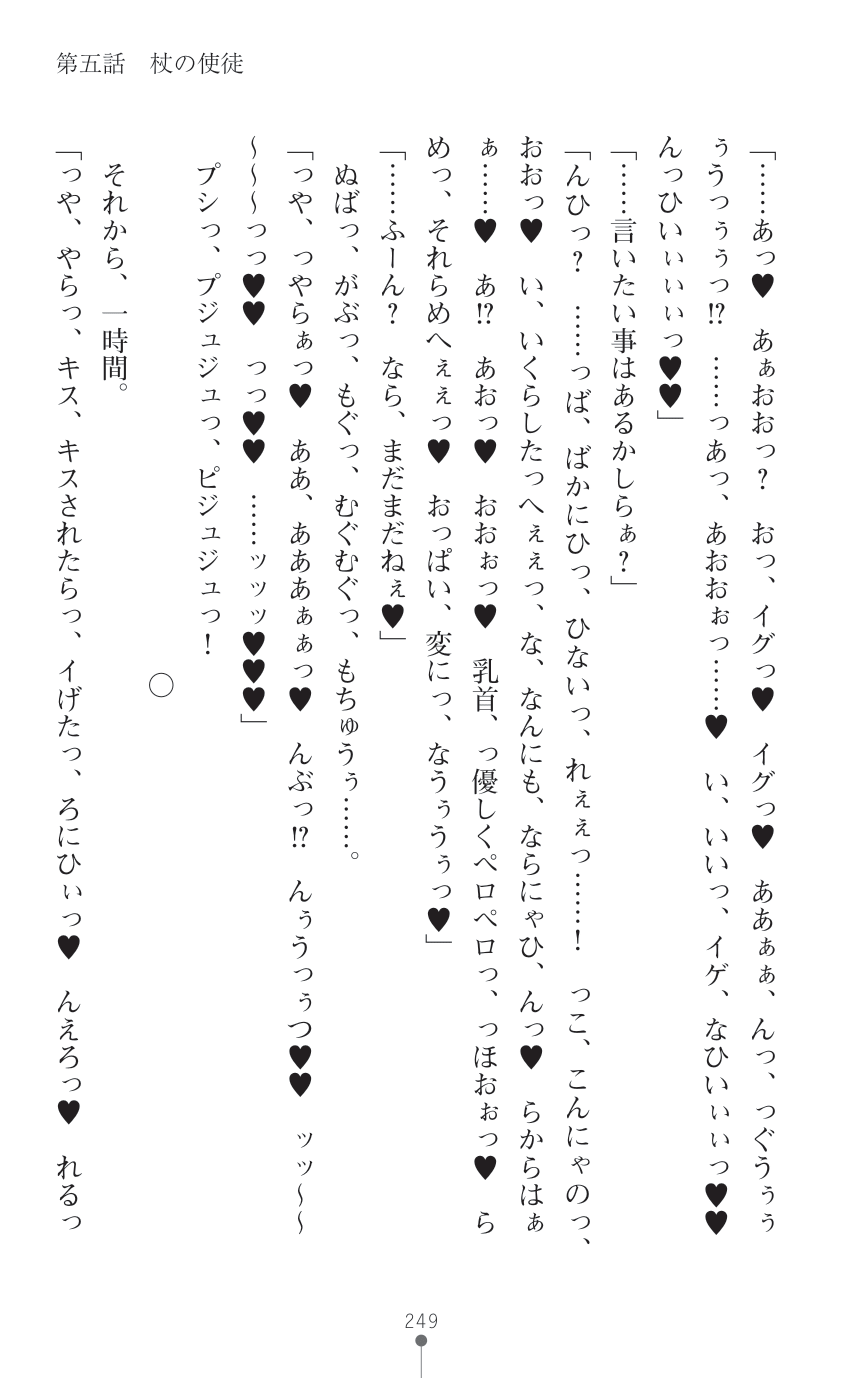 第五話　杖の使徒
「……あっ♥　あぉおおっ？　おっ、イグっ♥　イグっ♥　ああぁぁ、んっ、っぐうぅぅ
ぅうっぅぅっ!?　……っあっ、あおおぉっ……♥　い、いいっ、イゲ、なひいぃぃぃっ♥♥
んっひいぃぃぃっ♥♥」
「……言いたい事はあるかしらぁ？」
「んひっ？　……っば、ばかにひっ、ひないっ、れぇぇっ……！　っこ、こんにゃのっ、
おおっ♥　い、いくらしたっへぇぇっ、な、なんにも、ならにゃひ、んっ♥　らからはぁ
ぁ……♥　あ!?　あおっ♥　おおぉっ♥　乳首、っ優しくペロペロっ、っほおぉっ♥　ら
めっ、それらめへぇぇっ♥　おっぱい、変にっ、なうぅうぅっ♥」
「……ふーん？　なら、まだまだねぇ♥」
ぬばっ、がぶっ、もぐっ、むぐむぐっ、もちゅうぅ……。
「っや、っやらぁっ♥　ああ、あああぁぁっ♥　んぶっ!?　んぅうっぅつ♥♥　ッッ～～
～～～っっ♥♥　っっ♥♥　……ッッッ♥♥♥」
プシっ、プジュジュっ、ピジュジュっ！
○
それから、一時間。
「っや、やらっ、キス、キスされたらっ、イげたっ、ろにひぃっ♥　んえろっ♥　れるっ
249